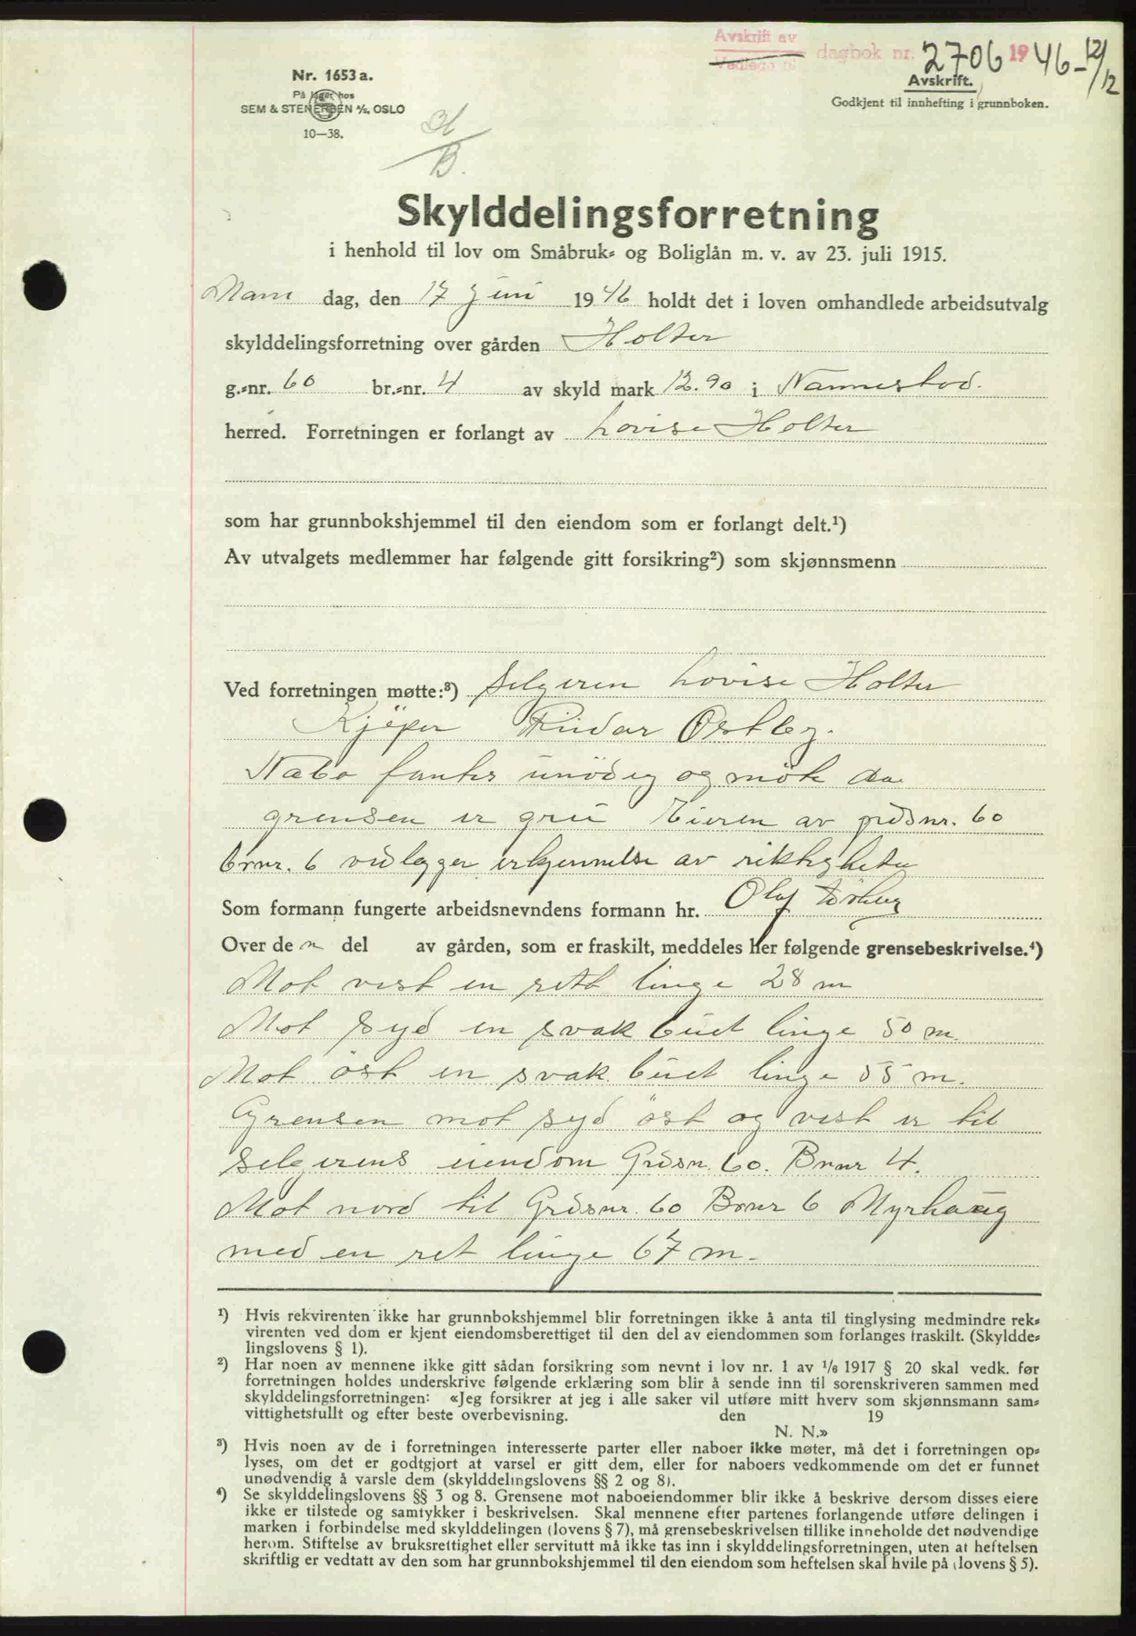 Avskrift av
Vedlegg til dagbok nr. 2706 1946-12/12
Avskrift.
Godkjent til innhefting i grunnboken.
Nr. 1653 a.
På lager hos
SEM & STENERSEN A/S, OSLO
10—38.
Skylddelingsforretning
i henhold til lov om Småbruk- og Boliglån m. v. av 23. juli 1915.
Man dag, den 17 Juni 1946 holdt det i loven omhandlede arbeidsutvalg
skylddelingsforretning over gården Holter
g.-nr. 60 br.-nr. 4 av skyld mark 12.90 i Nannestad.
herred. Forretningen er forlangt av Lovise Holter
som har grunnbokshjemmel til den eiendom som er forlangt delt.¹)
Av utvalgets medlemmer har følgende gitt forsikring²) som skjønnsmenn
Ved forretningen møtte:³) Selgeren Lovise Holter
Kjöper Reidar Østby.
Nabo fantes unödig og möte da
grensen er grei Eieren av grdsnr. 60
brnr. 6 vedlegger erkjennelse av riktigheten
Som formann fungerte arbeidsnevndens formann hr. Olaf
Over de n del av gården, som er fraskilt, meddeles her følgende grensebeskrivelse.⁴)
Mot vest en rett linge 28 m
Mot syd en svak buet linge 50 m.
Mot öst en svak buet linge 55 m.
Grensen mot syd öst og vest er til
selgerens eiendom Grdsn. 60. Brnr 4.
Mot nord til Grdsnr. 60 Brnr 6 Myrhaug
med en ret linge 67 m.
¹) Hvis rekvirenten ikke har grunnbokshjemmel blir forretningen ikke å anta til tinglysing medmindre rek-
virenten ved dom er kjent eiendomsberettiget til den del av eiendommen som forlanges fraskilt. (Skyldde-
lingslovens § 1).
²) Har noen av mennene ikke gitt sådan forsikring som nevnt i lov nr. 1 av 1/6 1917 § 20 skal vedk. før
forretningen holdes underskrive følgende erklæring som blir å sende inn til sorenskriveren sammen med
skylddelingsforretningen: «Jeg forsikrer at jeg i alle saker vil utføre mitt hverv som skjønnsmann sam-
vittighetsfullt og efter beste overbevisning. den 19
N. N.»
³) Hvis noen av de i forretningen interesserte parter eller naboer ikke møter, må det i forretningen op-
lyses, om det er godtgjort at varsel er gitt dem, eller for naboers vedkommende om det er funnet
unødvendig å varsle dem (skylddelingslovens §§ 2 og 8).
⁴) Se skylddelingslovens §§ 3 og 8. Grensene mot naboeiendommer blir ikke å beskrive dersom disses eiere
ikke er tilstede og samtykker i beskrivelsen. Skal mennene efter partenes forlangende utføre delingen i
marken i forbindelse med skylddelingen (lovens § 7), må grensebeskrivelsen tillike inneholde det nødvendige
herom. Stiftelse av bruksrettighet eller servitutt må ikke tas inn i skylddelingsforretningen, uten at heftelsen
skriftlig er vedtatt av den som har grunnbokshjemmel til den eiendom som heftelsen skal hvile på (lovens § 5).